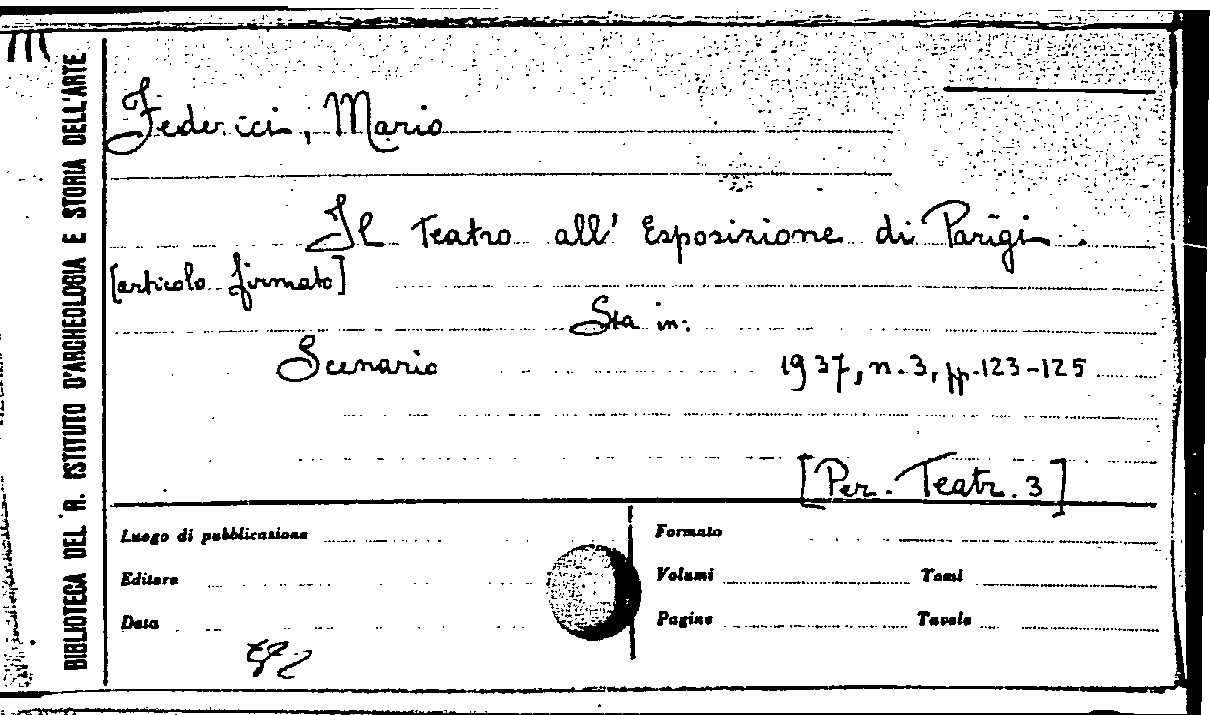 BIBLIOTECA DEL R. ISTITUTO D'ARCHEOLOGIA E STORIA DELL'ARTE
Federici, Mario
Il Teatro all' Esposizione di Parigi.
[articolo firmato]
Sta in:
Scenario 1937, n. 3, pp. 123-125
[Per. Teatr. 3]
Luogo di pubblicazione
Formato
Editore
Volumi Tomi
Data
Pagine Tavole